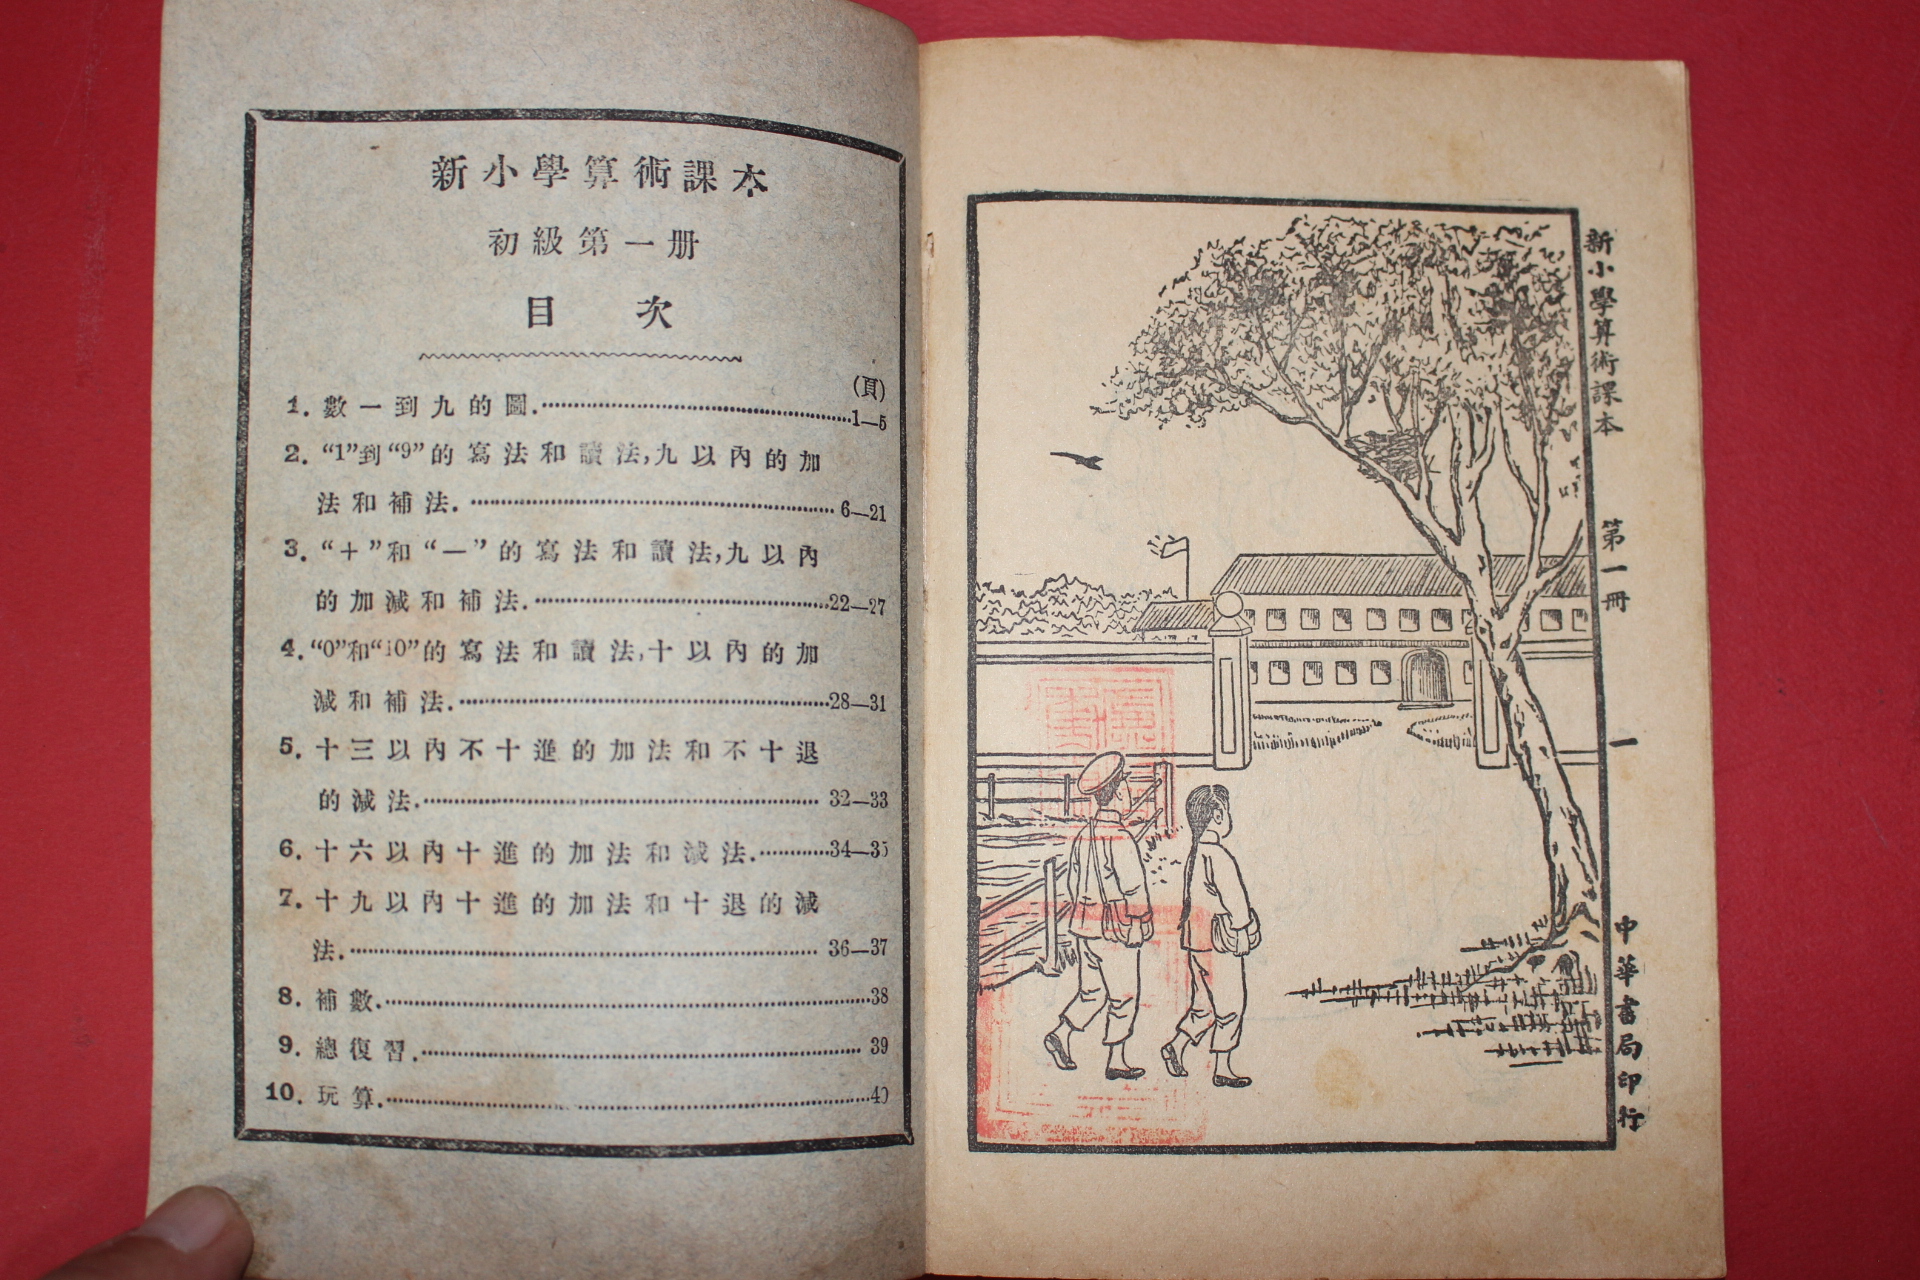 新小學算術課本
初級第一册
目 次
(頁)
1. 數一到九的圖.……1—5
2. “1”到“9”的寫法和讀法,九以內的加
法和補法.……6—21
3. “+”和“—”的寫法和讀法,九以內
的加減和補法.……22—27
4. “0”和“10”的寫法和讀法,十以內的加
減和補法.……28—31
5. 十三以內不十進的加法和不十退
的減法.……32—33
6. 十六以內十進的加法和減法.……34—35
7. 十九以內十進的加法和十退的減
法.……36—37
8. 補數.……38
9. 總復習.……39
10. 玩算.……40
新小學算術課本 第一冊 一 中華書局印行